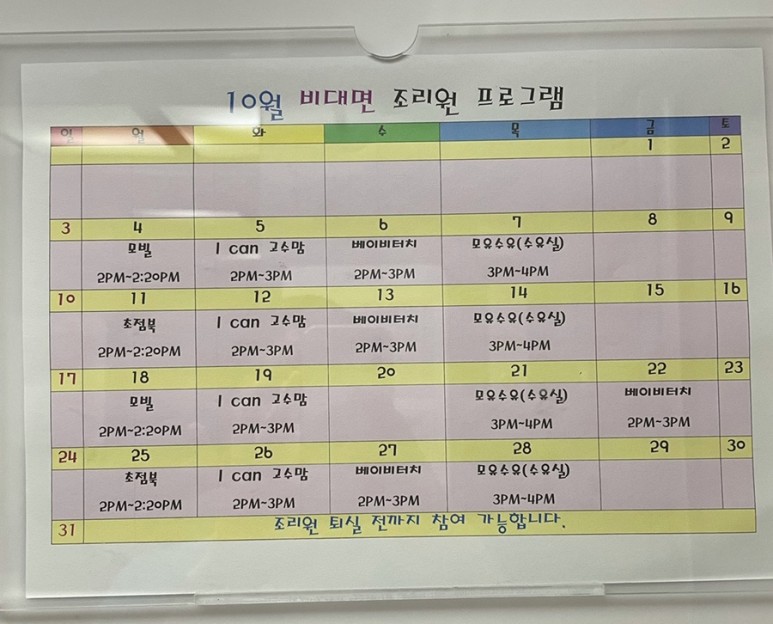 10월 비대면 조리원 프로그램
일 월 화 수 목 금 토
1 2
3 4 5 6 7 8 9
모빌 I can 고수맘 베이비터치 모유수유(수유실)
2PM~2:20PM 2PM~3PM 2PM~3PM 3PM~4PM
10 11 12 13 14 15 16
초점북 I can 고수맘 베이비터치 모유수유(수유실)
2PM~2:20PM 2PM~3PM 2PM~3PM 3PM~4PM
17 18 19 20 21 22 23
모빌 I can 고수맘 모유수유(수유실) 베이비터치
2PM~2:20PM 2PM~3PM 3PM~4PM 2PM~3PM
24 25 26 27 28 29 30
초점북 I can 고수맘 베이비터치 모유수유(수유실)
2PM~2:20PM 2PM~3PM 2PM~3PM 3PM~4PM
31 조리원 퇴실 전까지 참여 가능합니다.